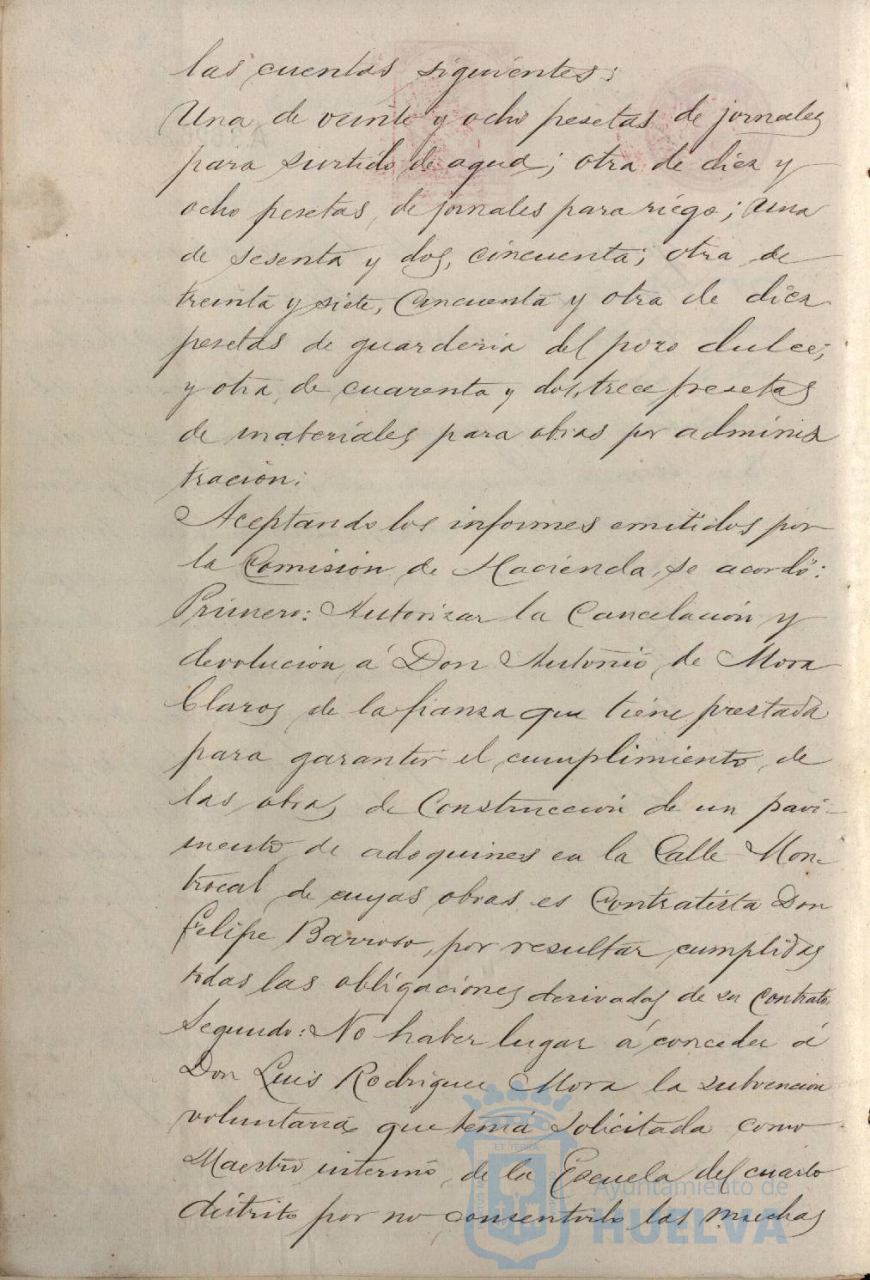 las cuentas siguientes:
Una de veinte y ocho pesetas de jornales
para surtido de agua; otra de diez y
ocho pesetas, de jornales para riego; una
de sesenta y dos, cincuenta; otra de
treinta y siete, cincuenta y otra de diez
pesetas de guarderia del pozo dulce;
y otra de cuarenta y dos, trece pesetas
de materiales para obras por adminis
tracion:
Aceptando los informes emitidos por
la Comisión de Hacienda, se acordó:
Primero: Autorizar la Cancelación y
devolucion á Don Antonio de Mora
Claros de la fianza que tiene prestada
para garantir el cumplimiento de
las obras de Construcción de un pavi-
mento de adoquines en la Calle Mon-
trocal de cuyas obras es Contratista Don
Felipe Barroso, por resultar cumplidas
todas las obligaciones derivadas de su contrato.
Segundo: No haber lugar á conceder á
Don Luis Rodriguez Mora la subvencion
voluntaria que tenia solicitada como
Maestro interino de la Escuela del cuarto
distrito por no consentirlo las muchas
Ayuntamiento de
HUELVA